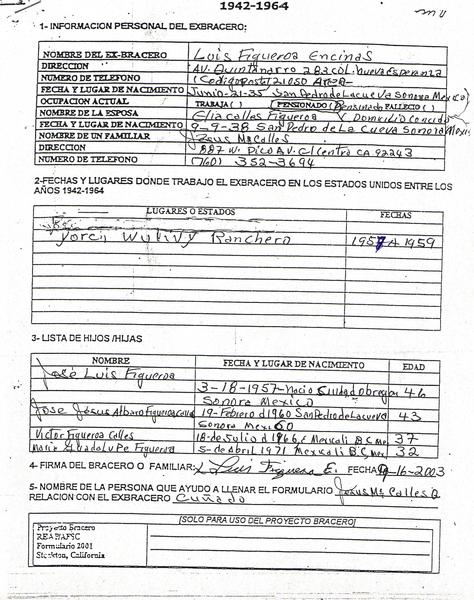 1942-1964
1- INFORMACION PERSONAL DEL EXBRACERO:
NOMBRE DEL EX-BRACERO Luis Figueroa Encinas
DIRECCION AV. Quintanarro 2802 col. nueva Esperanza
NUMERO DE TELEFONO (Codigo postal 21050
FECHA Y LUGAR DE NACIMIENTO Junio-21-35 San Pedro de La cueva Sonora Mexico
OCUPACION ACTUAL TRABAJA ( ) PENSIONADO ( Pensinado FALLECIO ( )
NOMBRE DE LA ESPOSA Elia Calles Figueroa y Domicilio conocido
FECHA Y LUGAR DE NACIMIENTO 9-9-38 San Pedro de La Cueva Sonora Mexico
NOMBRE DE UN FAMILIAR Jesus Ma Calles
DIRECCION 887 W. Pico AV. El Centro CA 92243
NUMERO DE TELEFONO (760) 352-3694
2-FECHAS Y LUGARES DONDE TRABAJO EL EXBRACERO EN LOS ESTADOS UNIDOS ENTRE LOS
AÑOS 1942-1964
LUGARES O ESTADOS FECHAS
Ranchero 1957 A 1959
3- LISTA DE HIJOS /HIJAS
NOMBRE FECHA Y LUGAR DE NACIMIENTO EDAD
José Luis Figueroa
3-18-1957- Nacio Ciudad obregon 46
Sonora Mexico
Jose Jesus Albaro Figueroa Calles 19-Febrero d 1960 San Pedro de La cueva 43
Sonora Mexico
Victor Figueroa Calles 18 de Julio d 1966 Mexicali B.C Mex 37
Maria Guadalupe Figueroa 5 de Abril 1971 Mexicali B.C Mex 32
4- FIRMA DEL BRACERO O FAMILIAR: X Luis Figueroa E. FECHA 9-16-2003
5- NOMBRE DE LA PERSONA QUE AYUDO A LLENAR EL FORMULARIO Jesus Ma Calles Q
RELACION CON EL EXBRACERO Cuñado
[SOLO PARA USO DEL PROYECTO BRACERO]
Proyecto Bracero
Formulario 2001
Stockton, California